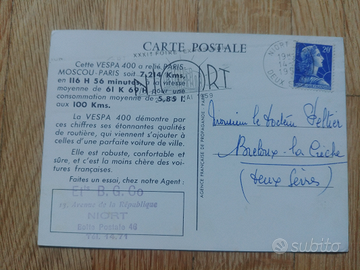 CARTE POSTALE
Cette VESPA 400 a relié PARIS-
MOSCOU-PARIS soit 7.214 Kms.
en 116 H 56 minutes à la vitesse
moyenne de 61 K 69/H pour une
consommation moyenne de 5,85 l.
aux 100 Kms.
La VESPA 400 démontre par
ces chiffres ses étonnantes qualités
de routière, qui viennent s'ajouter à
celles d'une parfaite voiture de ville.
Elle est robuste, confortable et
sûre, et c'est la moins chère des voi-
tures françaises.
Faites un essai, chez notre Agent :
Ets B. G. Co
Avenue de la République
NIORT
Boîte Postale 48
NIORT
AGENCE FRANÇAISE DE PROPAGANDE PARIS
20F
Monsieur le Docteur Peltier
Breloux-la Crèche
(Deux Sèvres)
subito